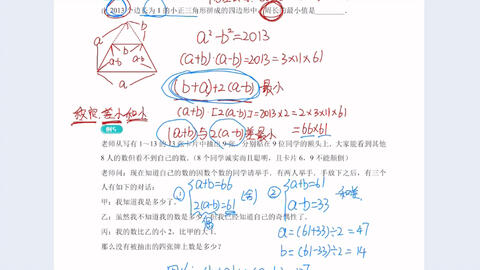 2013个边长为1的小正三角形拼成的四边形中,周长的最小值是
a²-b²=2013
(a+b)·(a-b)=2013=3×11×61
(b+a)+2(a-b)最小
(a+b)·[2(a-b)]=2013×2=2×3×11×61
积定,差小和小
(a+b)与2(a-b)差最小
=66×61
例5
老师从写有1~13的13张卡片中抽出9张,分别贴在9位同学的额头上,大家能看到其他
8人的数但看不到自己的数.(8个同学诚实而且聪明,且卡片6、9不能颠倒)
老师问:现在知道自己的数的因数个数的同学请举手,有两人举手.手放下之后,有三个
人有如下的对话:
① a+b=66
2(a-b)=61 (舍)
② a+b=61
a-b=33
甲:我知道我是多少了.
乙:虽然我不知道我的数是多少
已经知道自己的奇偶性了.
丙:我的数比乙的小2,比甲的大1.
那么没有被抽出的四张牌上数是多少?
a=(61+33)÷2=47
b=(61-33)÷2=14